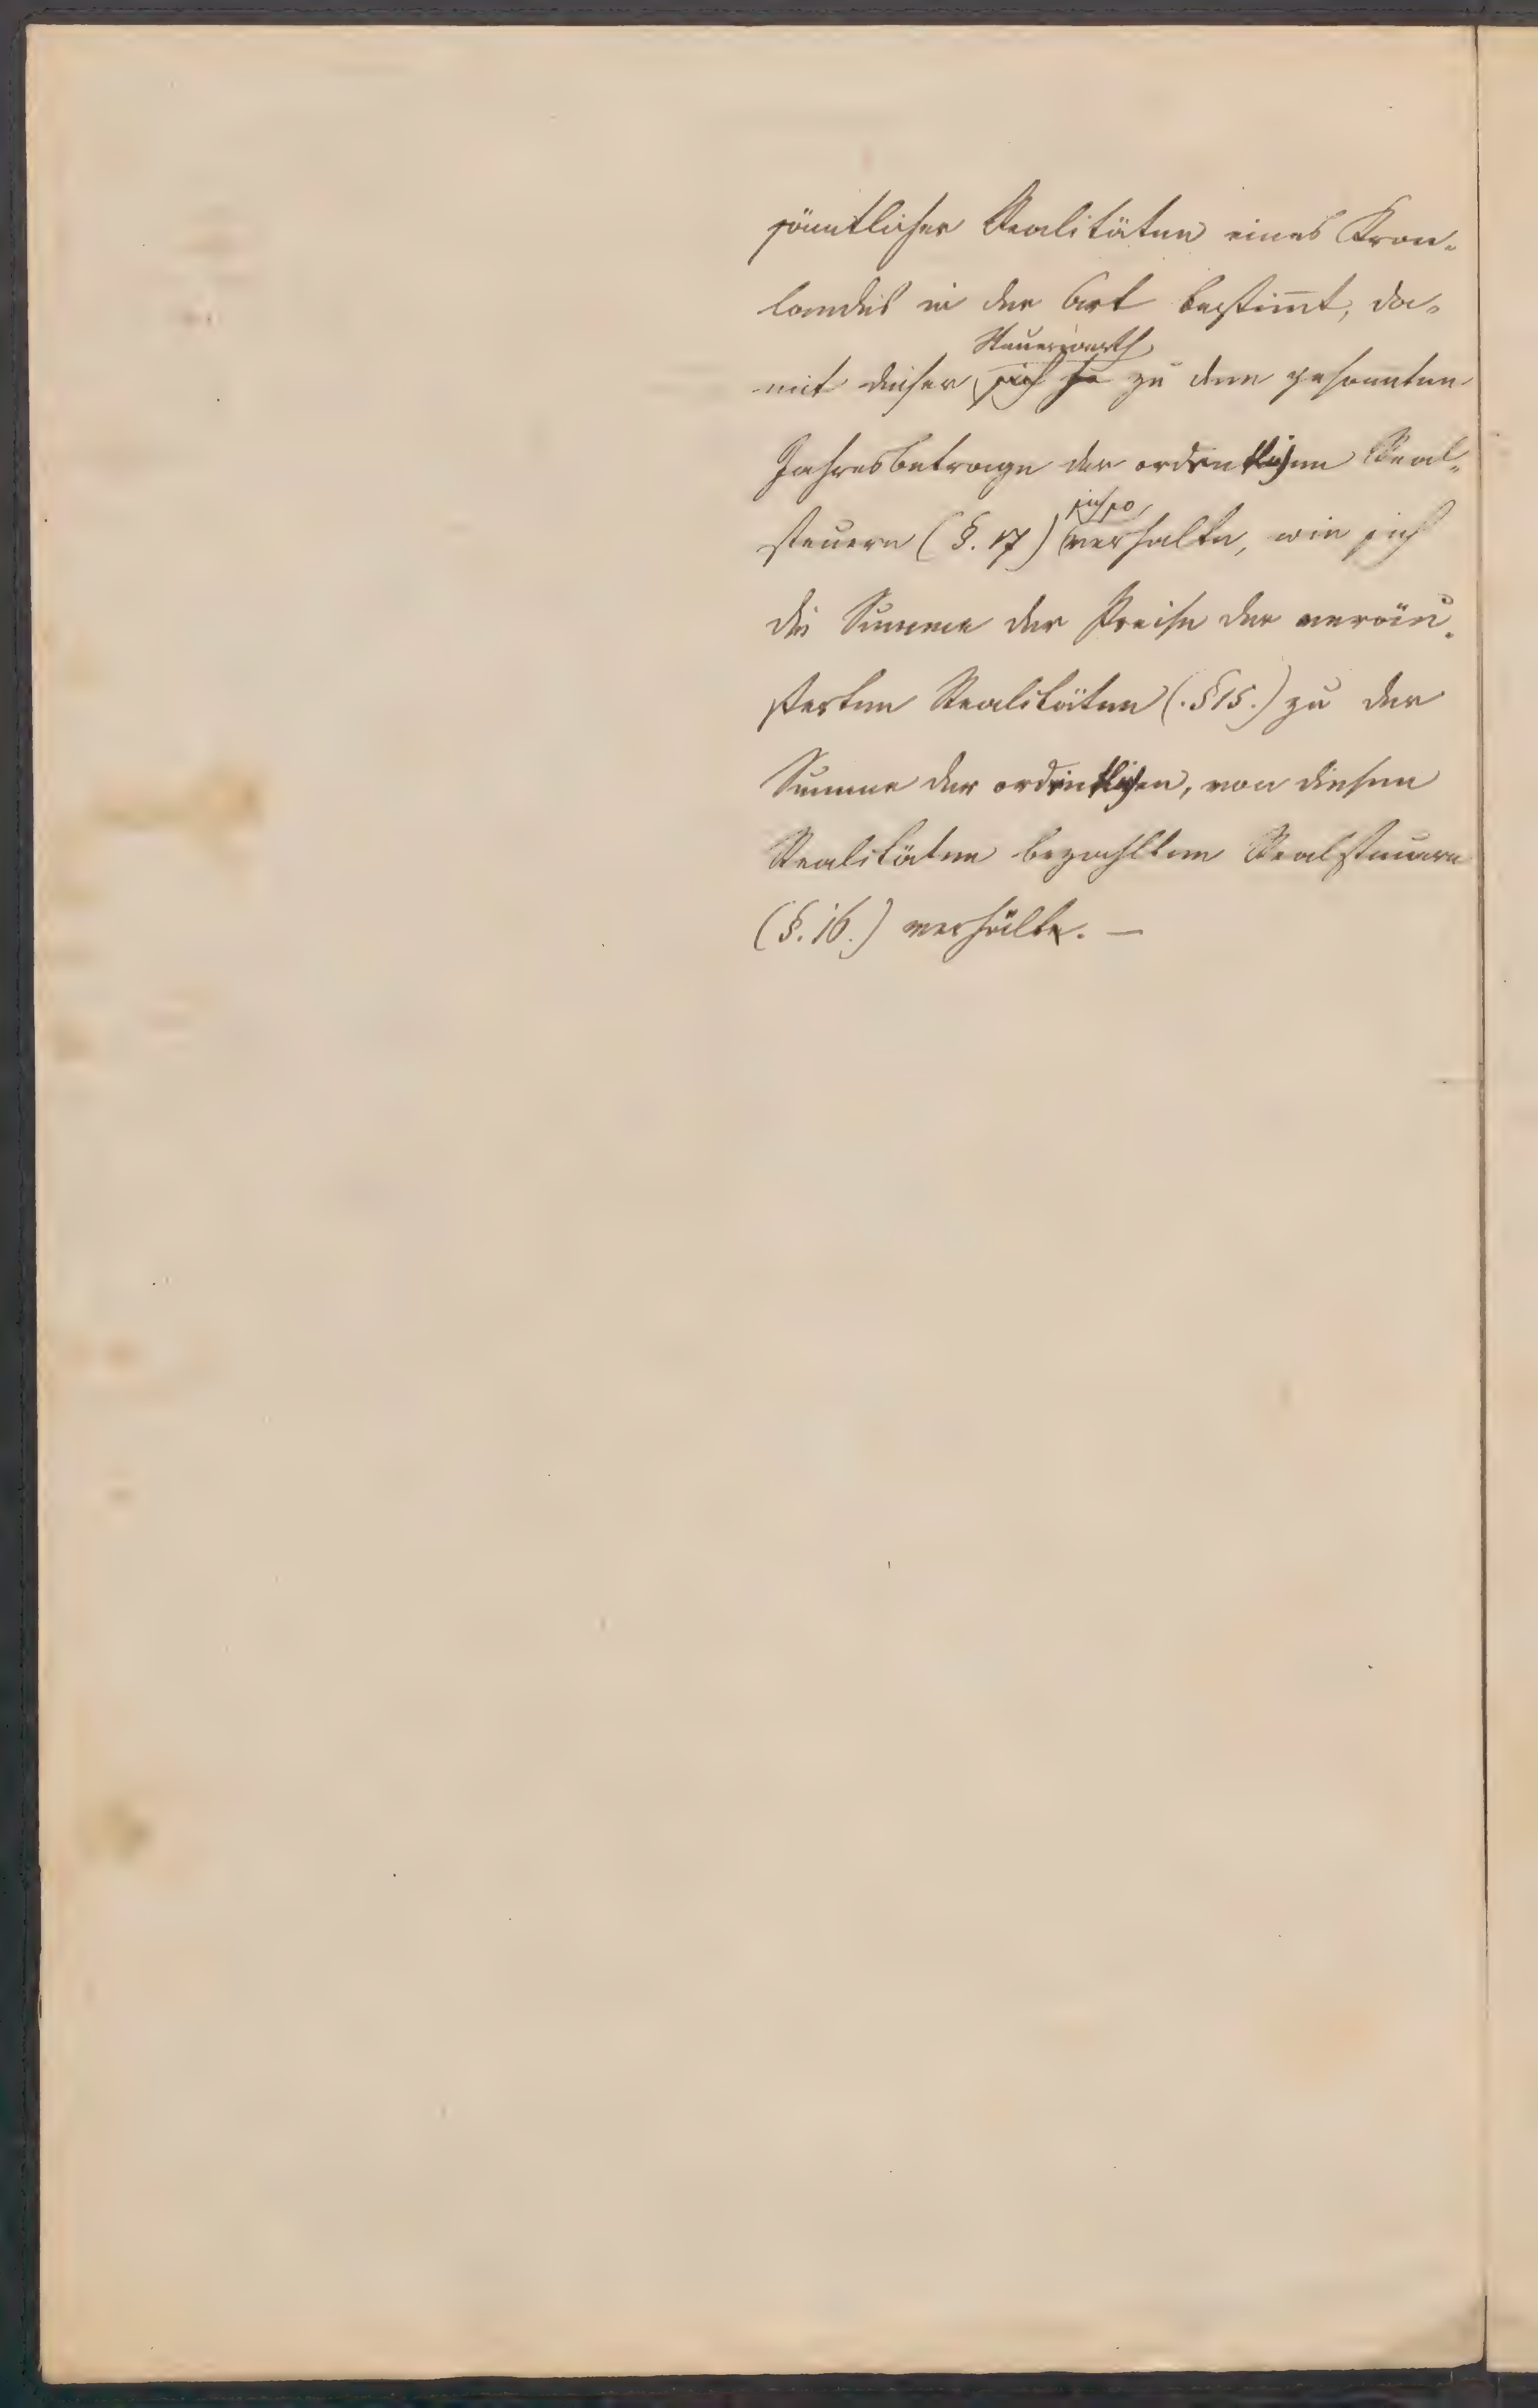 sämtlicher Realitäten eines Kron-
landes in der Art bestim̅t, da-
Steuerwerth
mit dieser sich so zu dem gesammten
Jahresbetrage der ordentlichen Real-
sich so
steuern (§. 17) verhalte, wie sich
die Summe der Preise der veräu-
ßerten Realitäten (. §15.) zu der
Summe der ordentlichen, von diesen
Realitäten bezahlten Realsteuern
(§. 16.) verhält. —